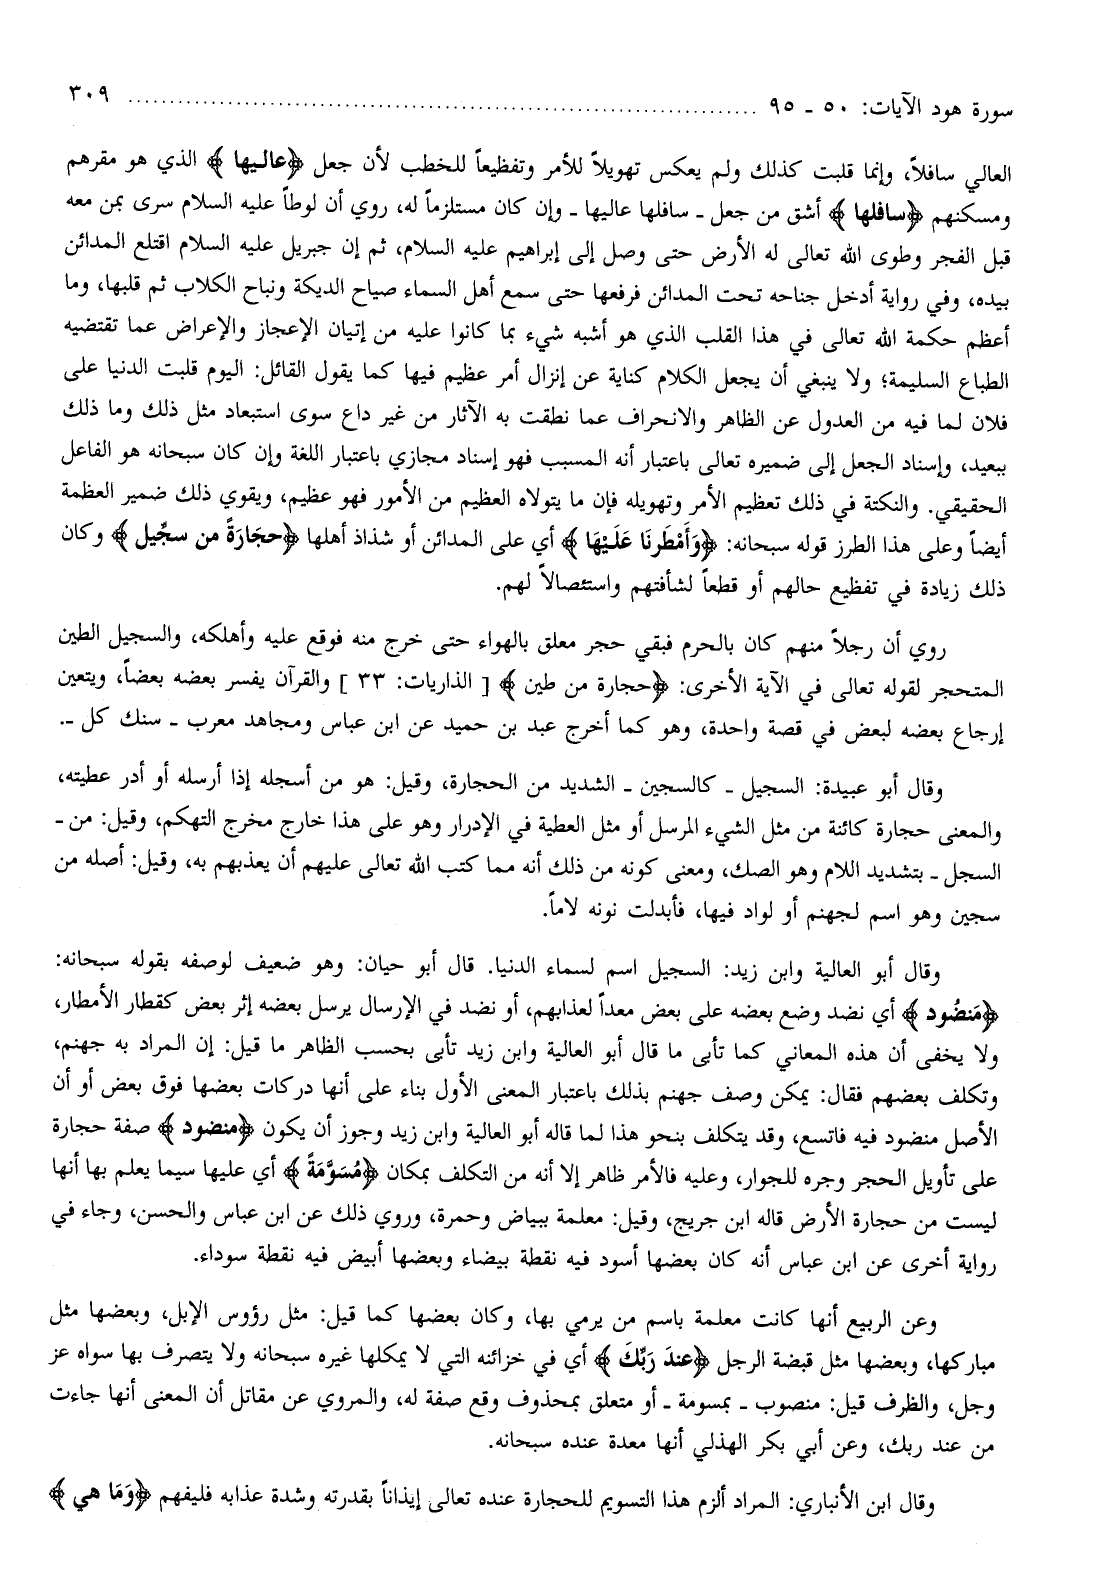 سورة هود الآيات: ٥٠ ـ ٩٥ ........................................................................ ٣٠٩
العالي سافلاً، وإنما قلبت كذلك ولم يعكس تهويلاً للأمر وتفظيعاً للخطب لأن جعل ﴿عاليها﴾ الذي هو مقرهم
ومسكنهم ﴿سافلها﴾ أشق من جعل ـ سافلها عاليها ـ وإن كان مستلزماً له، روي أن لوطاً عليه السلام سرى بمن معه
قبل الفجر وطوى الله تعالى له الأرض حتى وصل إلى إبراهيم عليه السلام، ثم إن جبريل عليه السلام اقتلع المدائن
بيده، وفي رواية أدخل جناحه تحت المدائن فرفعها حتى سمع أهل السماء صياح الديكة ونباح الكلاب ثم قلبها، وما
أعظم حكمة الله تعالى في هذا القلب الذي هو أشبه شيء بما كانوا عليه من إتيان الإعجاز والإعراض عما تقتضيه
الطباع السليمة؛ ولا ينبغي أن يجعل الكلام كناية عن إنزال أمر عظيم فيها كما يقول القائل: اليوم قلبت الدنيا على
فلان لما فيه من العدول عن الظاهر والانحراف عما نطقت به الآثار من غير داع سوى استبعاد مثل ذلك وما ذلك
ببعيد، وإسناد الجعل إلى ضميره تعالى باعتبار أنه المسبب فهو إسناد مجازي باعتبار اللغة وإن كان سبحانه هو الفاعل
الحقيقي. والنكتة في ذلك تعظيم الأمر وتهويله فإن ما يتولاه العظيم من الأمور فهو عظيم، ويقوي ذلك ضمير العظمة
أيضاً وعلى هذا الطرز قوله سبحانه: ﴿وَأَمْطَرنَا عَلَيْهَا﴾ أي على المدائن أو شذاذ أهلها ﴿حجَارَةً من سجِّيل﴾ وكان
ذلك زيادة في تفظيع حالهم أو قطعاً لشأفتهم واستئصالاً لهم.
روي أن رجلاً منهم كان بالحرم فبقي حجر معلق بالهواء حتى خرج منه فوقع عليه وأهلكه، والسجيل الطين
المتحجر لقوله تعالى في الآية الأخرى: ﴿حجارة من طين﴾ [ الذاريات: ٣٣ ] والقرآن يفسر بعضه بعضاً، ويتعين
إرجاع بعضه لبعض في قصة واحدة، وهو كما أخرج عبد بن حميد عن ابن عباس ومجاهد معرب ـ سنك كل ـ.
وقال أبو عبيدة: السجيل ـ كالسجين ـ الشديد من الحجارة، وقيل: هو من أسجله إذا أرسله أو أدر عطيته،
والمعنى حجارة كائنة من مثل الشيء المرسل أو مثل العطية في الإدرار وهو على هذا خارج مخرج التهكم، وقيل: من ـ
السجل ـ بتشديد اللام وهو الصك، ومعنى كونه من ذلك أنه مما كتب الله تعالى عليهم أن يعذبهم به، وقيل: أصله من
سجين وهو اسم لجهنم أو لواد فيها، فأبدلت نونه لاماً.
وقال أبو العالية وابن زيد: السجيل اسم لسماء الدنيا. قال أبو حيان: وهو ضعيف لوصفه بقوله سبحانه:
﴿مَنضُود﴾ أي نضد وضع بعضه على بعض معداً لعذابهم، أو نضد في الإرسال يرسل بعضه إثر بعض كقطار الأمطار،
ولا يخفى أن هذه المعاني كما تأبى ما قال أبو العالية وابن زيد تأبى بحسب الظاهر ما قيل: إن المراد به جهنم،
وتكلف بعضهم فقال: يمكن وصف جهنم بذلك باعتبار المعنى الأول بناء على أنها دركات بعضها فوق بعض أو أن
الأصل منضود فيه فاتسع، وقد يتكلف بنحو هذا لما قاله أبو العالية وابن زيد وجوز أن يكون ﴿منضود﴾ صفة حجارة
على تأويل الحجر وجره للجوار، وعليه فالأمر ظاهر إلا أنه من التكلف بمكان ﴿مُسَوَّمَةً﴾ أي عليها سيما يعلم بها أنها
ليست من حجارة الأرض قاله ابن جريج، وقيل: معلمة ببياض وحمرة، وروي ذلك عن ابن عباس والحسن، وجاء في
رواية أخرى عن ابن عباس أنه كان بعضها أسود فيه نقطة بيضاء وبعضها أبيض فيه نقطة سوداء.
وعن الربيع أنها كانت معلمة باسم من يرمي بها، وكان بعضها كما قيل: مثل رؤوس الإبل، وبعضها مثل
مباركها، وبعضها مثل قبضة الرجل ﴿عندَ رَبِّكَ﴾ أي في خزائنه التي لا يملكها غيره سبحانه ولا يتصرف بها سواه عز
وجل، والظرف قيل: منصوب ـ بمسومة ـ أو متعلق بمحذوف وقع صفة له، والمروي عن مقاتل أن المعنى أنها جاءت
من عند ربك، وعن أبي بكر الهذلي أنها معدة عنده سبحانه.
وقال ابن الأنباري: المراد ألزم هذا التسويم للحجارة عنده تعالى إيذاناً بقدرته وشدة عذابه فليفهم ﴿وَمَا هي﴾